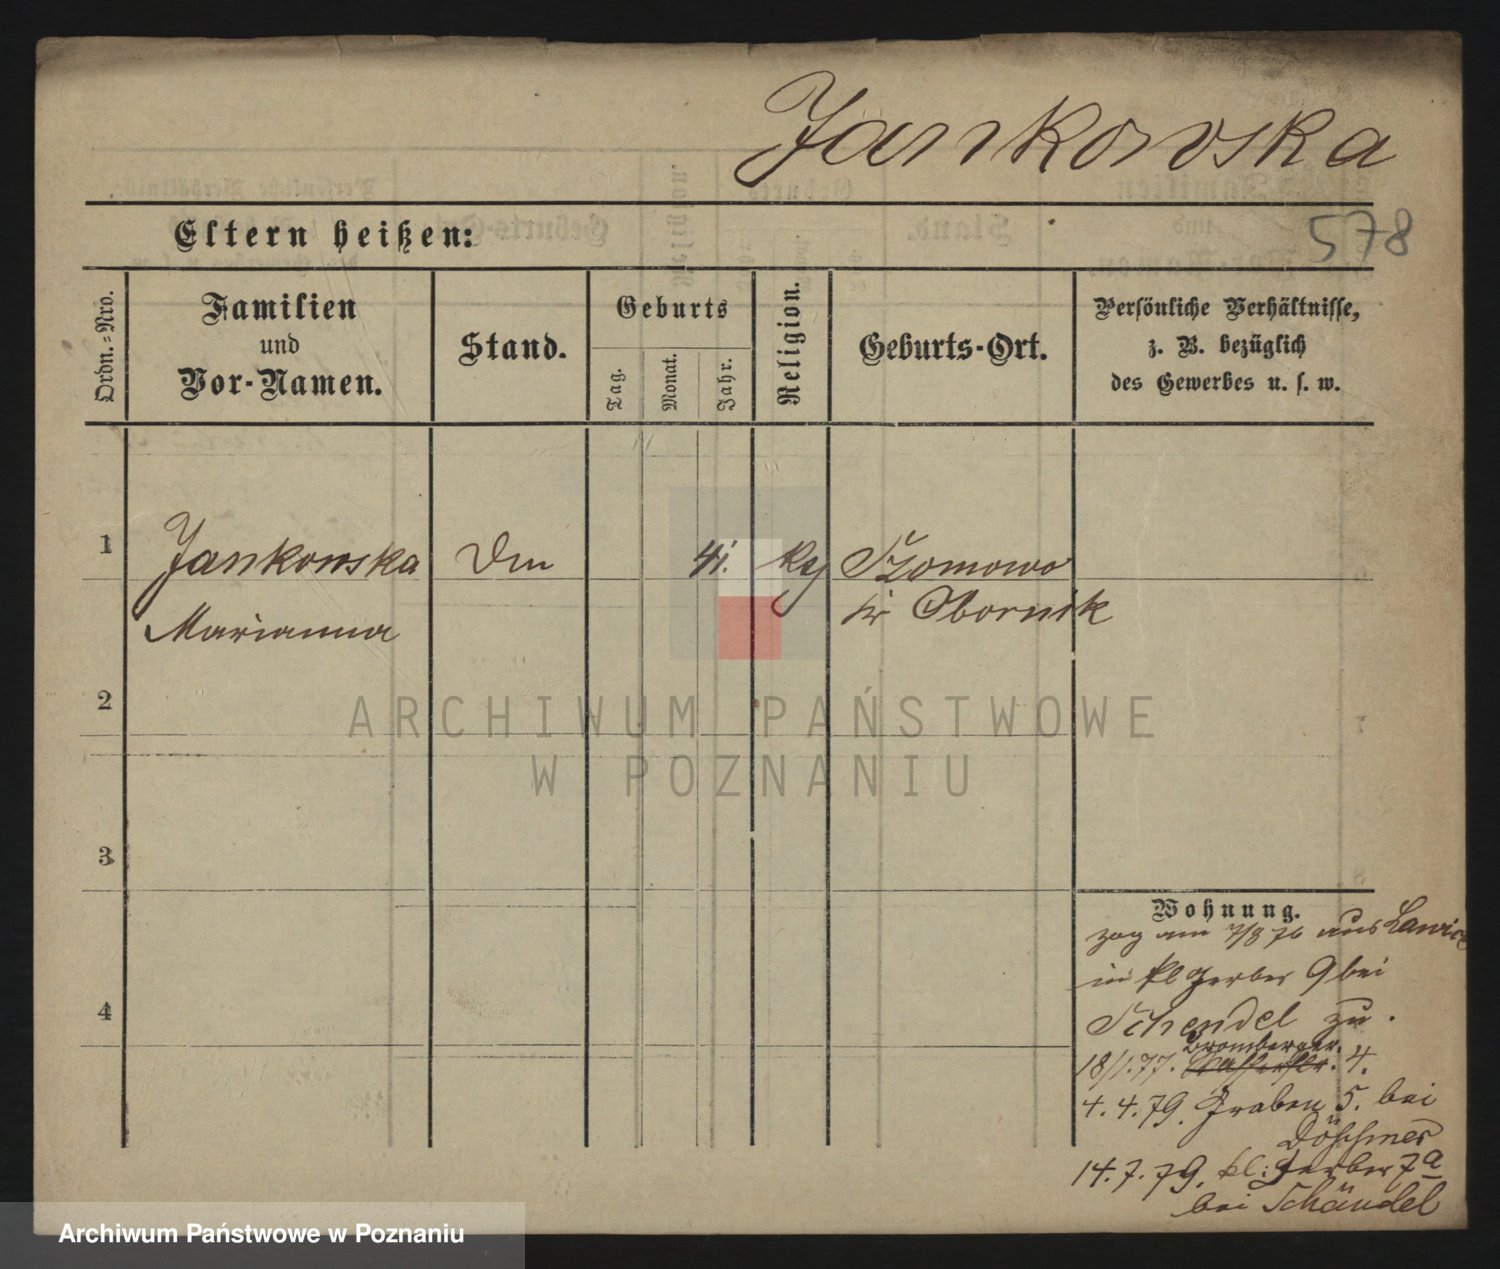 Jankowska
578
Eltern heißen:
Ordn.=Nro.
Familien
und
Vor-Namen.
Stand.
Geburts
Tag.
Monat.
Jahr.
Religion.
Geburts-Ort.
Persönliche Verhältnisse,
z. B. bezüglich
des Gewerbes u. s. w.
1
Jankowska
41.
Marianna
Obornik
2
ARCHIWUM PAŃSTWOWE
W POZNANIU
3
4
Wohnung.
zog am 7/8 76 aus
in kl Gerber 9 bei
Schendel zu.
Bromberger
18/1.77. 4.
4.4.79. Graben 5. bei
14.7.79. kl: Gerber 7a
bei Schändel
Archiwum Państwowe w Poznaniu